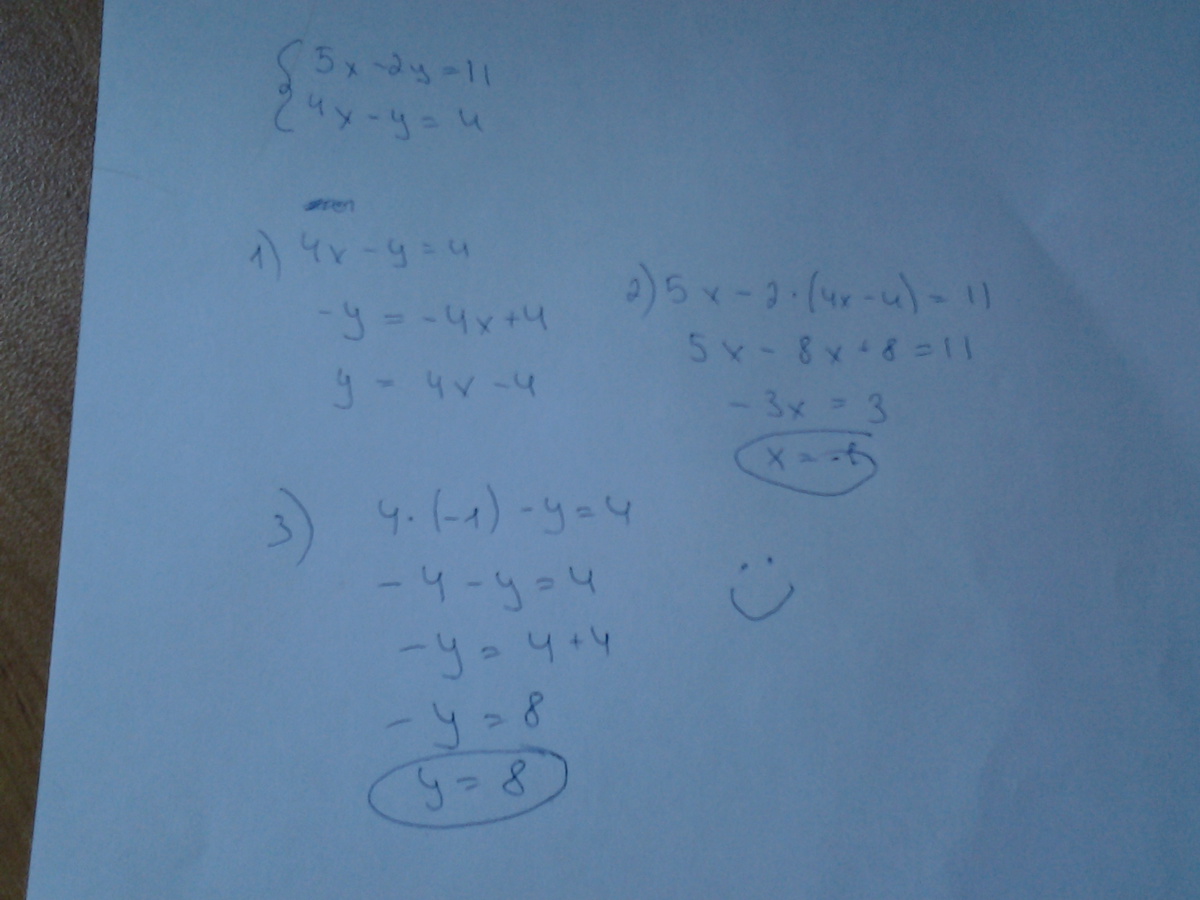 5x-2y=11
4x-y=4
1) 4x-y=4
-y=-4x+4
y=4x-4
2) 5x-2·(4x-4)=11
5x-8x+8=11
-3x=3
x=-1
3) 4·(-1)-y=4
-4-y=4
-y=4+4
-y=8
y=8